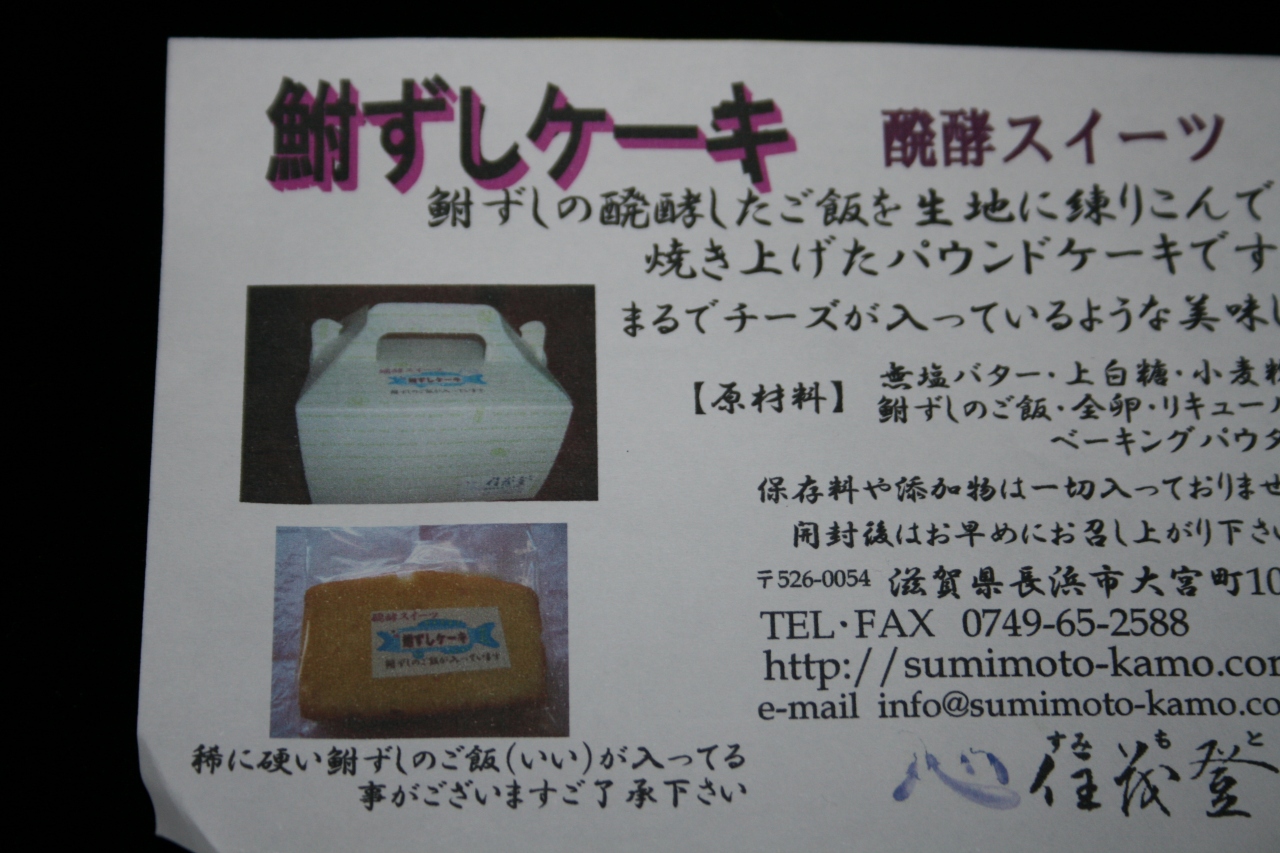 鮒ずしケーキ 醗酵スイーツ
鮒ずしの醗酵したご飯を生地に練りこんで
焼き上げたパウンドケーキです
まるでチーズが入っているような美味し
【原材料】
無塩バター・上白糖・小麦粉
鮒ずしのご飯・全卵・リキュール
ベーキングパウダ
保存料や添加物は一切入っておりませ
開封後はお早めにお召し上がり下さい
〒526-0054 滋賀県長浜市大宮町10
TEL・FAX 0749-65-2588
http://sumimoto-kamo.com
e-mail info@sumimoto-kamo.co
すみ も と
心 住茂登
醗酵スイーツ
鮒ずしケーキ
鮒ずしのご飯が入っています
醗酵スイーツ
鮒ずしケーキ
鮒ずしのご飯が入っています
住茂登
稀に硬い鮒ずしのご飯(いい)が入ってる
事がございますご了承下さい